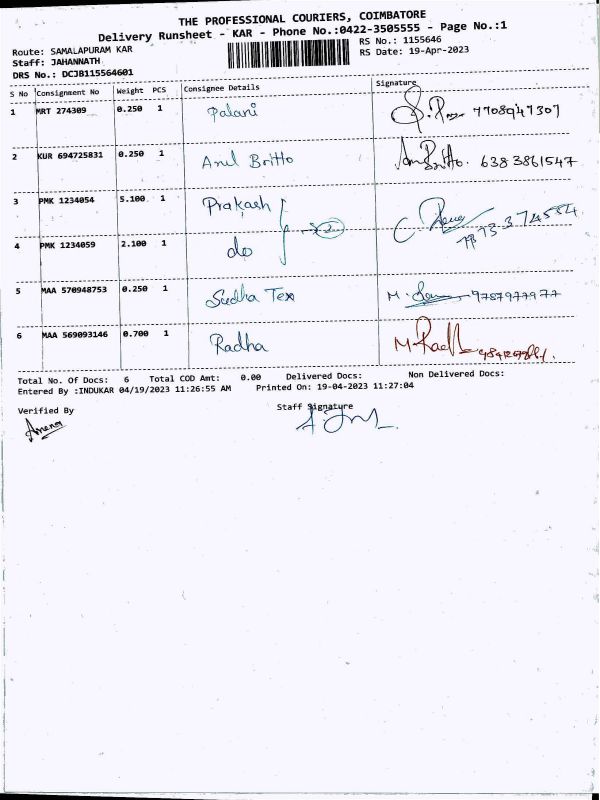 THE PROFESSIONAL COURIERS, COIMBATORE
Delivery Runsheet - KAR - Phone No.:0422-3505555 - Page No.:1
Route: SAMALAPURAM KAR RS No.: 1155646
Staff: JAHANNATH RS Date: 19-Apr-2023
DRS No.: DCJB115564601
S No Consignment No Weight PCS Consignee Details Signature
1 MRT 274309 0.250 1 Palani 7708947307
2 KUR 694725831 0.250 1 Anil Britto 6383861547
3 PMK 1234054 5.100 1 Prakash
4 PMK 1234059 2.100 1 do
5 MAA 570948753 0.250 1 Sudha Tex 9787977977
6 MAA 569093146 0.700 1 Radha
Total No. Of Docs: 6 Total COD Amt: 0.00 Delivered Docs: Non Delivered Docs:
Entered By :INDUKAR 04/19/2023 11:26:55 AM Printed On: 19-04-2023 11:27:04
Verified By Staff Signature